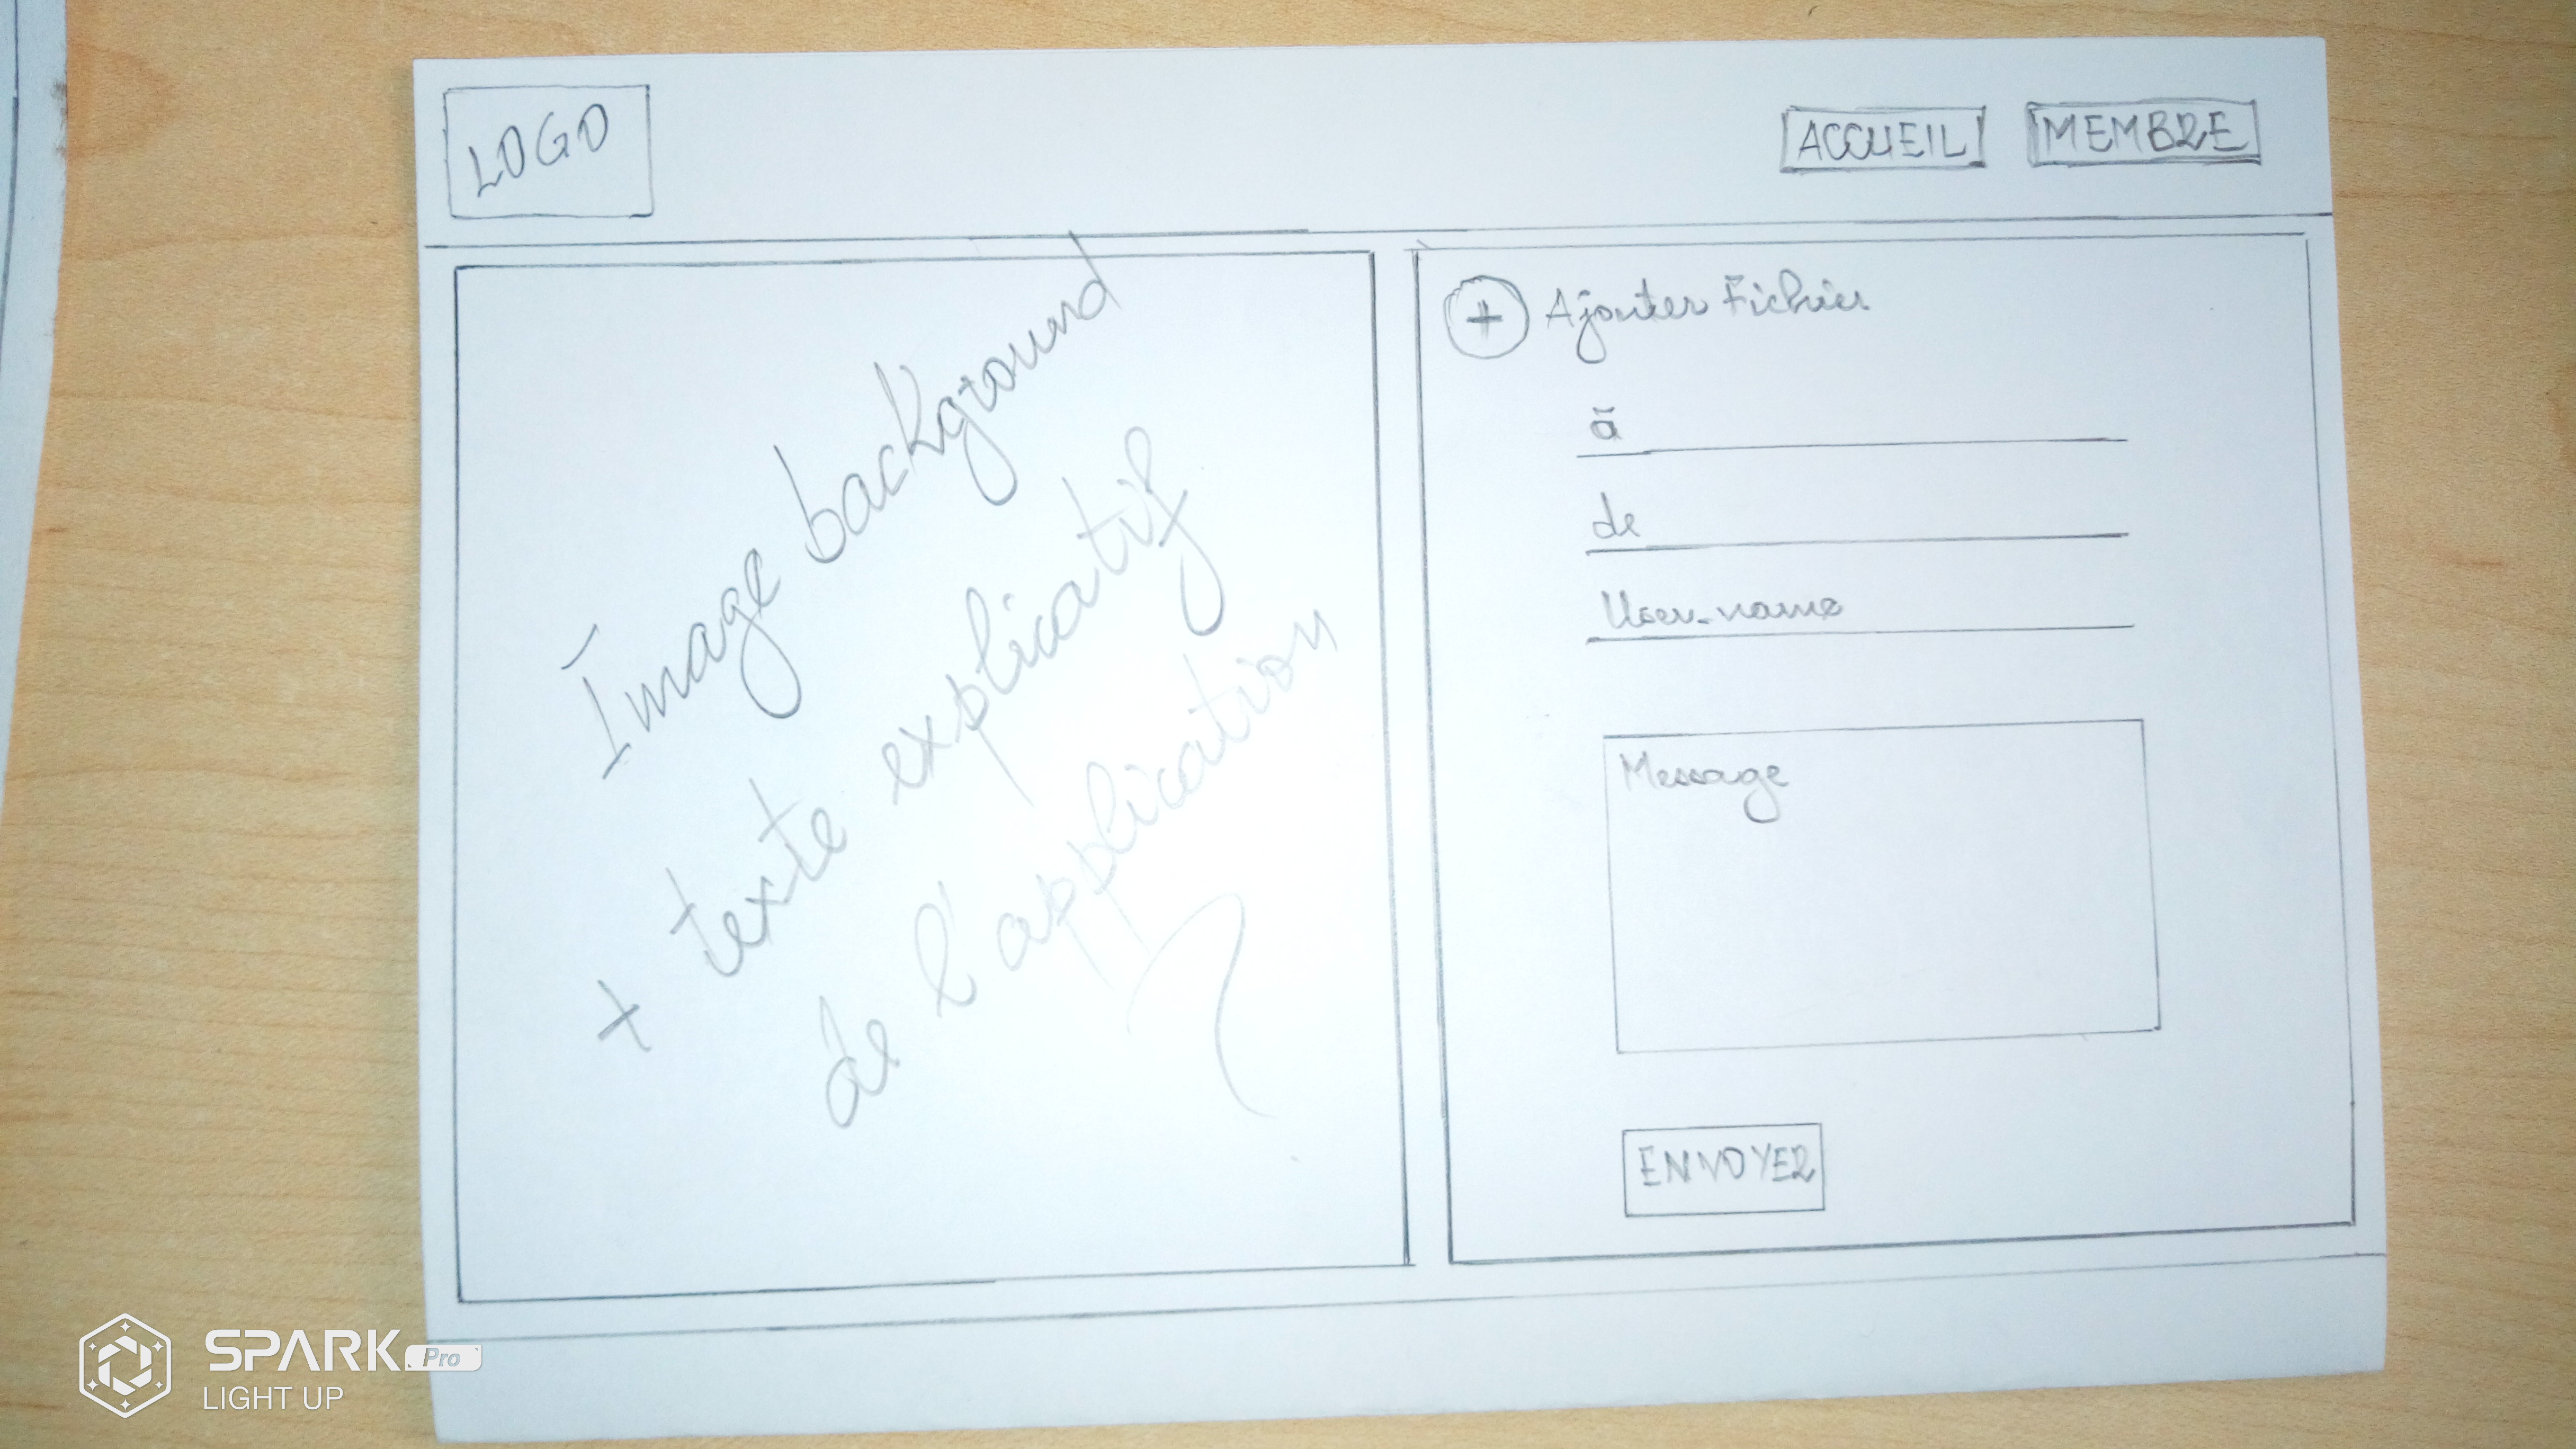 LOGO
ACCUEIL
MEMBRE
Image background
+ texte explicatif
de l'application
+ Ajouter Fichier
à
de
User-name
Message
ENVOYER
SPARK Pro
LIGHT UP